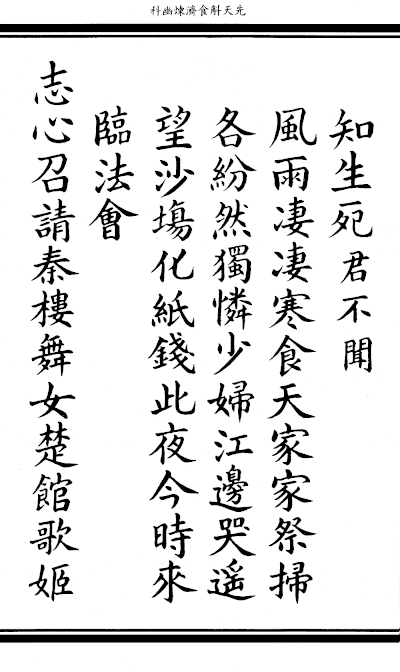 科幽煉濟食斛天先
知生死君不聞
風雨凄凄寒食天家家祭掃
各紛然獨憐少婦江邊哭遥
望沙塲化紙錢此夜今時來
臨法會
志心召請秦樓舞女楚館歌姬